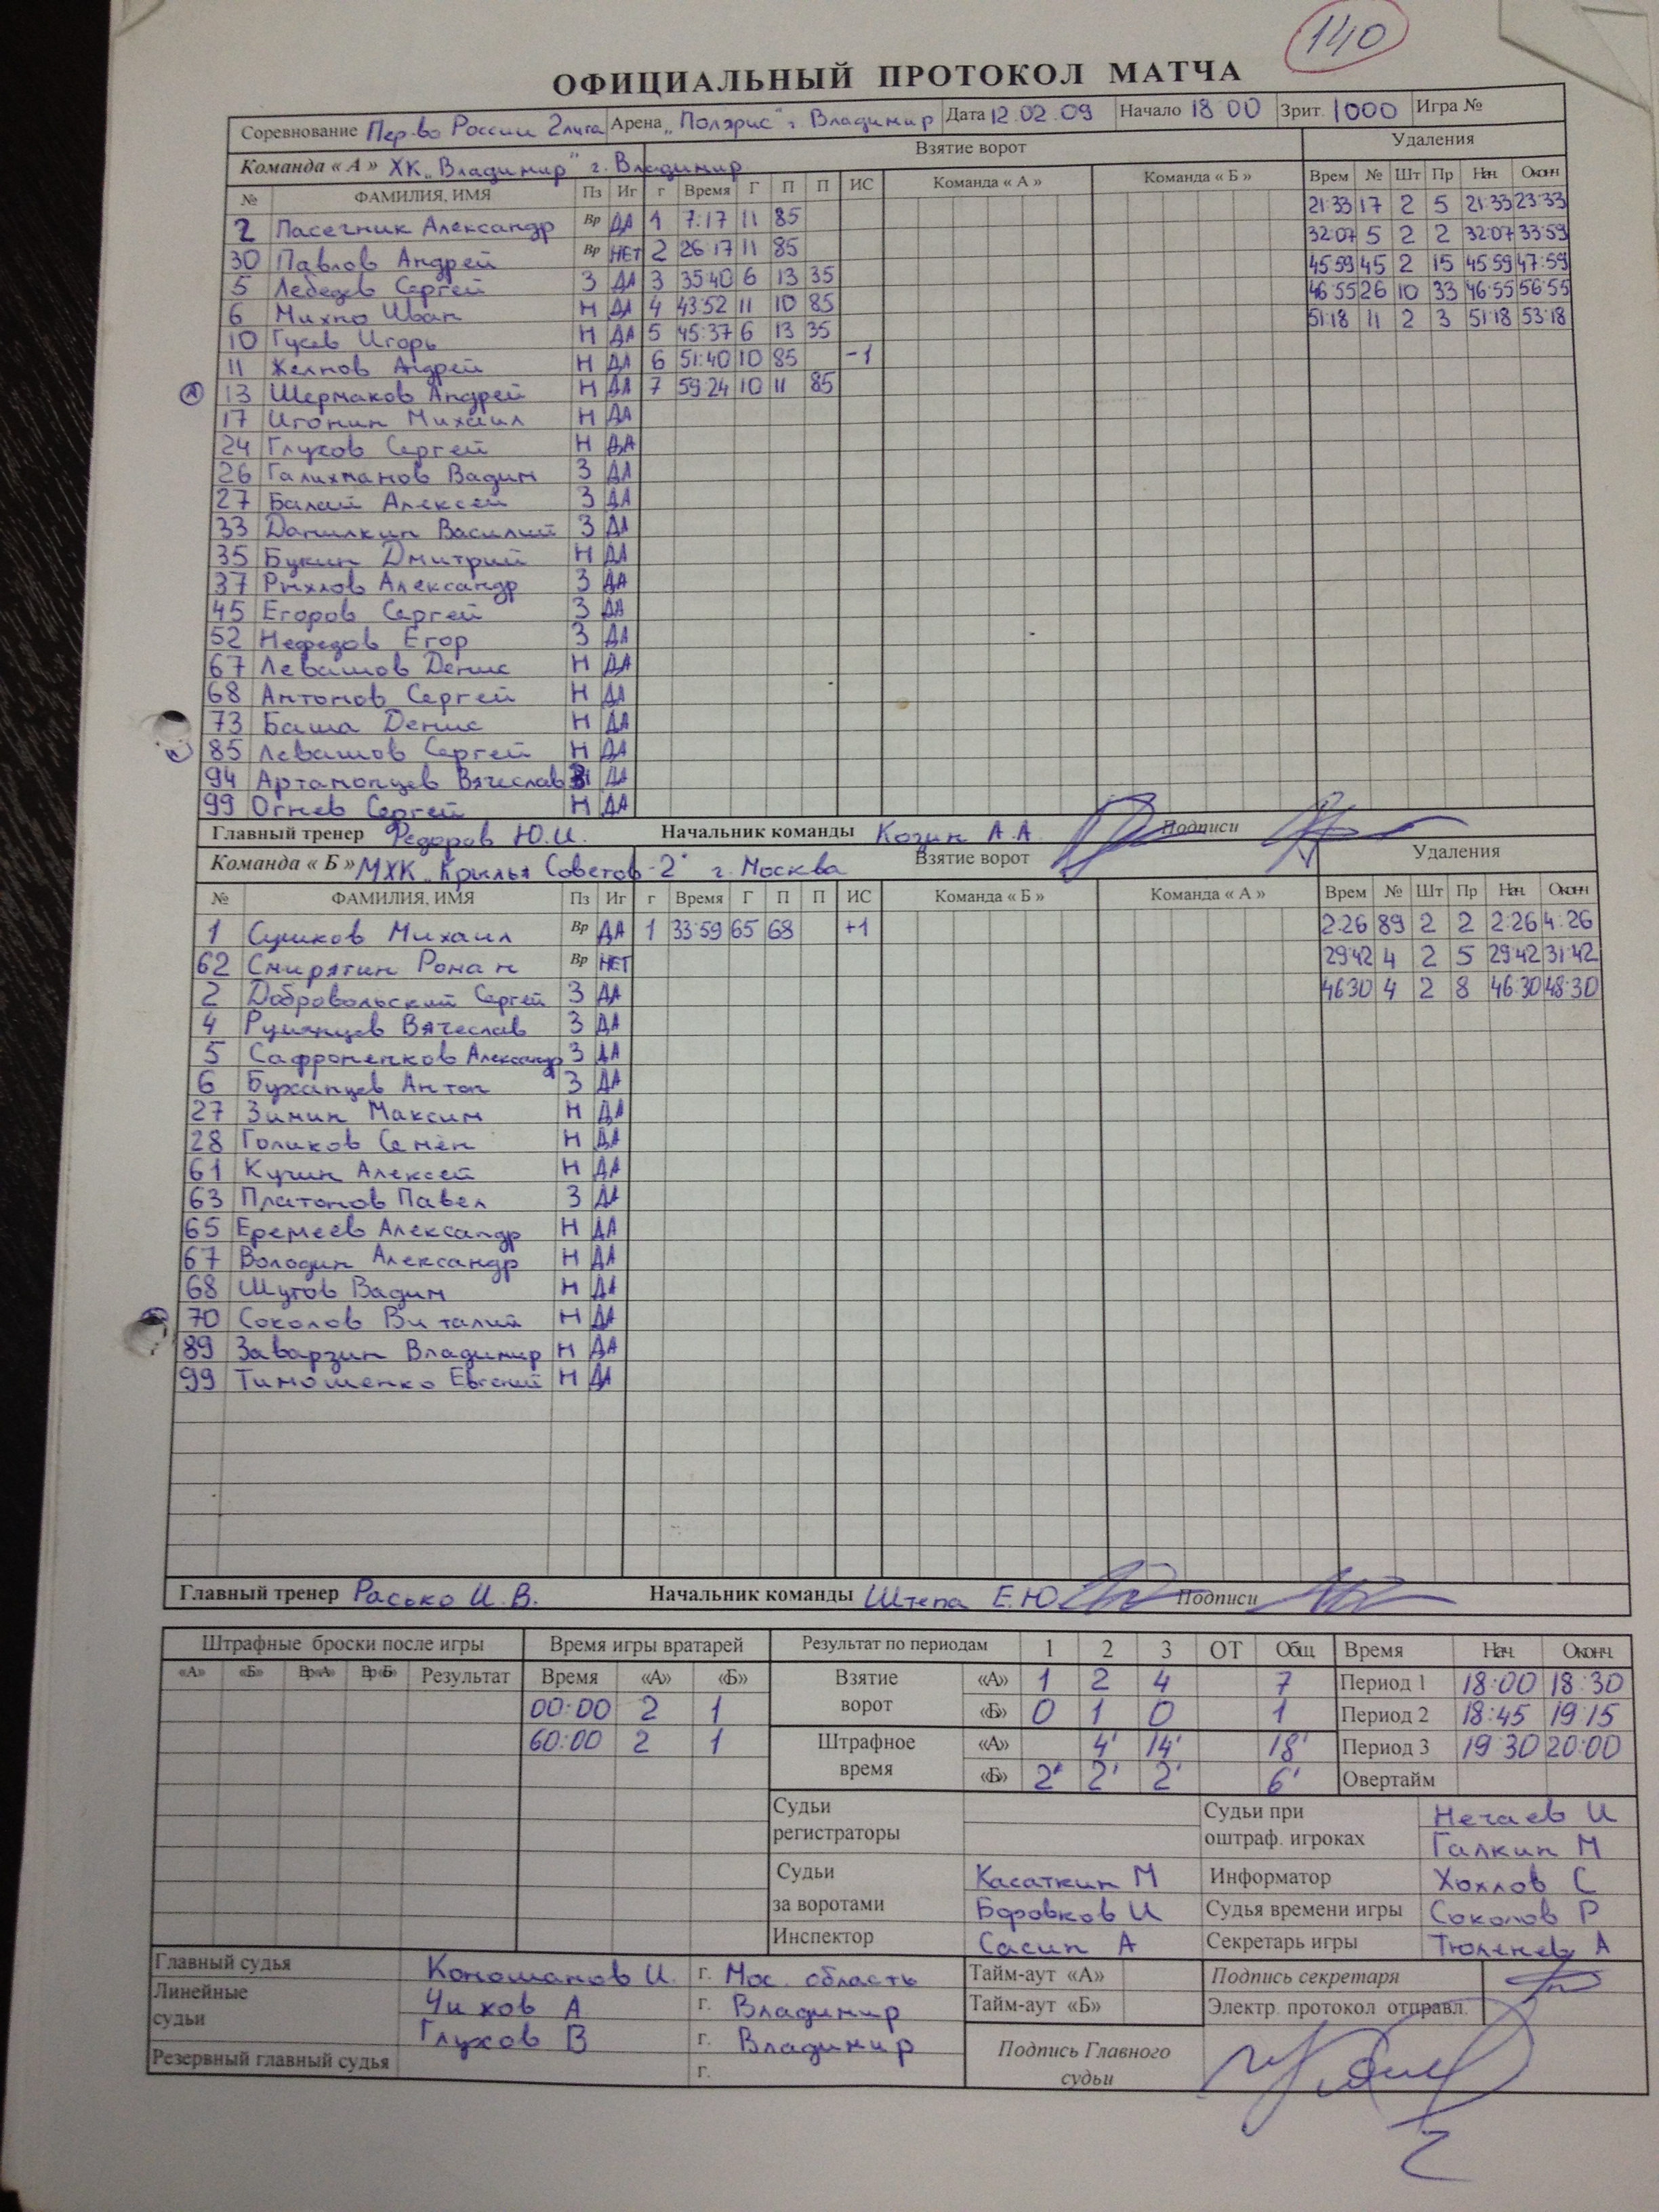 140
ОФИЦИАЛЬНЫЙ ПРОТОКОЛ МАТЧА
Соревнование Пер-во России 2 лига Арена „Полярис" г. Владимир Дата 12.02.09 Начало 18 00 Зрит. 1000 Игра №
Команда « А » ХК „Владимир" г. Владимир Взятие ворот Удаления
№ ФАМИЛИЯ, ИМЯ Пз Иг г Время Г П П ИС Команда « А » Команда « Б » Врем № Шт Пр Нач. Оконч
2 Пасечник Александр Вр ДА 1 7:17 11 85 21:33 17 2 5 21:33 23:33
30 Павлов Андрей Вр НЕТ 2 26 17 11 85 32:07 5 2 2 32:07 33:59
5 Лебедев Сергей З ДА 3 35:40 6 13 35 45 59 45 2 15 45 59 47:59
6 Михно Иван Н ДА 4 43:52 11 10 85 46:55 26 10 33 46:55 56:55
10 Гусев Игорь Н ДА 5 45:37 6 13 35 51:18 11 2 3 51:18 53:18
11 Желнов Андрей Н ДА 6 51:40 10 85 -1
А 13 Шермаков Андрей Н ДА 7 59:24 10 11 85
17 Игонин Михаил Н ДА
24 Глухов Сергей Н ДА
26 Галихманов Вадим З ДА
27 Балай Алексей З ДА
33 Данилкин Василий З ДА
35 Букин Дмитрий Н ДА
37 Рыхлов Александр З ДА
45 Егоров Сергей З ДА
52 Нефедов Егор З ДА
67 Левашов Денис Н ДА
68 Антонов Сергей Н ДА
73 Баша Денис Н ДА
85 Левашов Сергей Н ДА
94 Артамонцев Вячеслав ДА
99 Огнев Сергей Н ДА
Главный тренер Федоров Ю.И. Начальник команды Козин А.А Подписи
Команда « Б » МХК „Крылья Советов-2" г. Москва Взятие ворот Удаления
№ ФАМИЛИЯ, ИМЯ Пз Иг г Время Г П П ИС Команда « Б » Команда « А » Врем № Шт Пр Нач. Оконч
1 Сушков Михаил Вр ДА 1 33:59 65 68 +1 2:26 89 2 2 2:26 4:26
62 Смирягин Роман Вр НЕТ 29:42 4 2 5 29:42 31:42
2 Добровольский Сергей З ДА 46 30 4 2 8 46:30 48:30
4 Румянцев Вячеслав З ДА
5 Сафроненков Александр З ДА
6 Буханцев Антон З ДА
27 Зинин Максим Н ДА
28 Голиков Семён Н ДА
61 Кучин Алексей Н ДА
63 Платонов Павел З ДА
65 Еремеев Александр Н ДА
67 Володин Александр Н ДА
68 Шутов Вадим Н ДА
70 Соколов Виталий Н ДА
89 Заварзин Владимир Н ДА
99 Тимошенко Евгений Н ДА
Главный тренер Расько И.В. Начальник команды Штепа Е.Ю Подписи
Штрафные броски после игры Время игры вратарей Результат по периодам 1 2 3 ОТ Общ. Время Нач. Оконч.
«А» «Б» Вр«А» Вр«Б» Результат Время «А» «Б» Взятие ворот «А» 1 2 4 7 Период 1 18:00 18:30
00:00 2 1 «Б» 0 1 0 1 Период 2 18:45 19:15
60:00 2 1 Штрафное время «А» 4' 14' 18' Период 3 19 30 20:00
«Б» 2' 2' 2' 6' Овертайм
Судьи регистраторы Судьи при оштраф. игроках Нечаев И
Галкин М
Судьи за воротами Касаткин М Информатор Хохлов С
Боровков И Судья времени игры Соколов Р
Инспектор Сасин А Секретарь игры Тюленев А
Главный судья Кономанов И. г. Мос. область Тайм-аут «А» Подпись секретаря
Линейные судьи Чихов А г. Владимир Тайм-аут «Б» Электр. протокол отправл.
Глухов В г. Владимир Подпись Главного судьи
Резервный главный судья г.